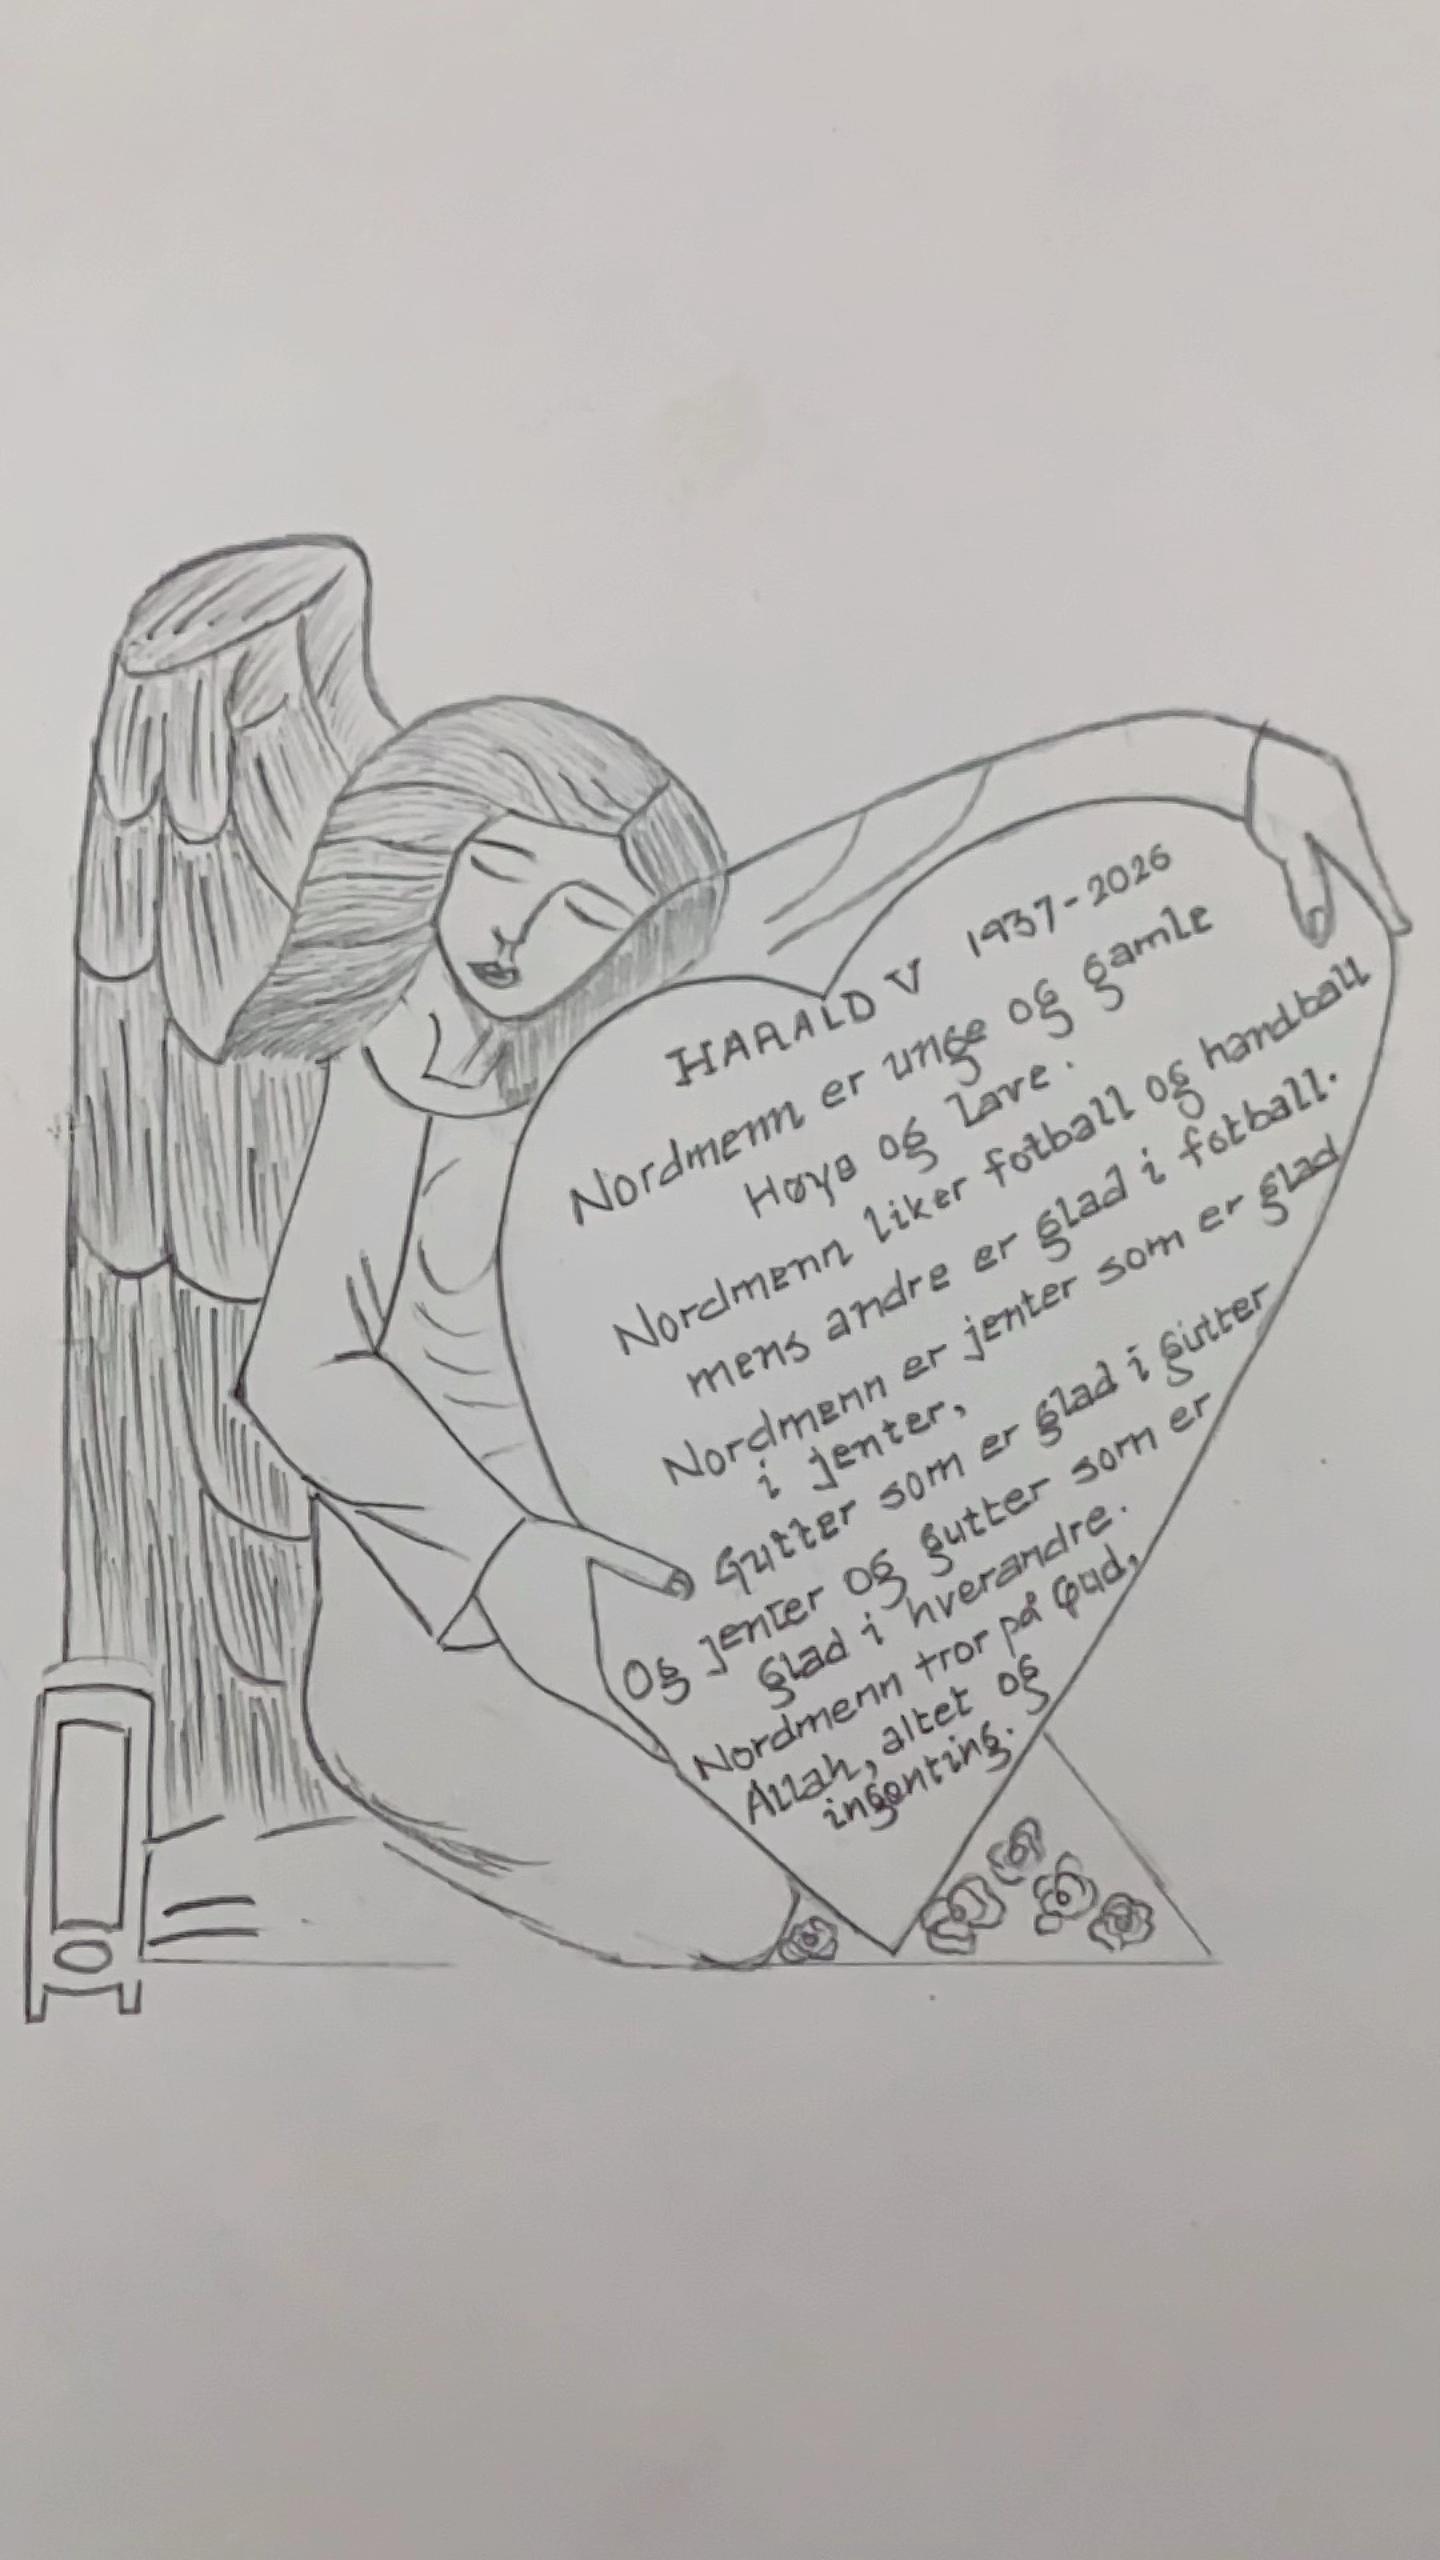 HARALD V 1937-2026
Nordmenn er unge og gamle
Høye og lave.
Nordmenn liker fotball og handball
mens andre er glad i fotball.
Nordmenn er jenter som er glad
i jenter,
Gutter som er glad i gutter
Og jenter og gutter som er
glad i hverandre.
Nordmenn tror på Gud,
Allah, altet og
ingenting.